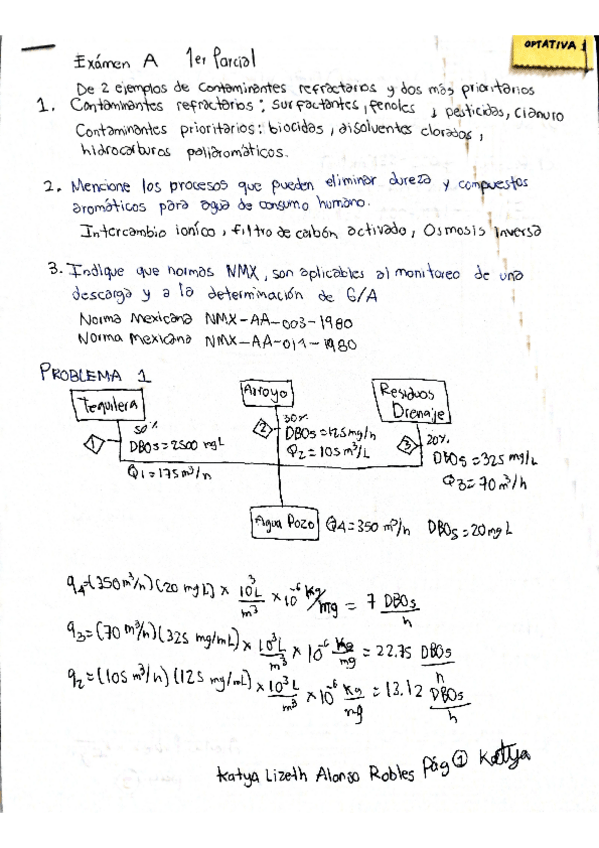 OPTATIVA 1
Exámen A 1er Parcial
De 2 ejemplos de Contaminantes refractarios y dos más prioritarios
1. Contaminantes refractarios: surfactantes, fenoles y pesticidas, cianuro
Contaminantes prioritarios: biocidas, disolventes clorados,
hidrocarburos poliaromáticos.
2. Mencione los procesos que pueden eliminar dureza y compuestos
aromáticos para agua de consumo humano.
Intercambio ioníco, filtro de carbón activado, Osmosis inversa
3. Indique que normas NMX, son aplicables al monitoreo de una
descarga y a la determinación de G/A
Norma Mexicana NMX-AA-003-1980
Norma Mexicana NMX-AA-014-1980
PROBLEMA 1
Tequilera
Arroyo
Residuos
Drenaje
1
50%
DBO5=2500 mg/L
Q1=175m³/h
2
30%
DBO5=125mg/h
Q2=105m³/L
3
20%
DBO5=325 mg/L
Q3=70m³/h
Agua Pozo Q4=350 m³/h DBO5=20mg L
q4=(350m³/h)(20 mg L) × 10³L/m³ × 10⁻⁶ Kg/mg = 7 DBO5/h
q3=(70 m³/h)(325 mg/mL) × 10³L/m³ × 10⁻⁶ Kg/mg = 22.75 DBO5/h
q2=(105 m³/h)(125 mg/mL) × 10³L/m³ × 10⁻⁶ Kg/mg = 13.12 DBO5/h
Katya Lizeth Alonso Robles Pág 1 Katya